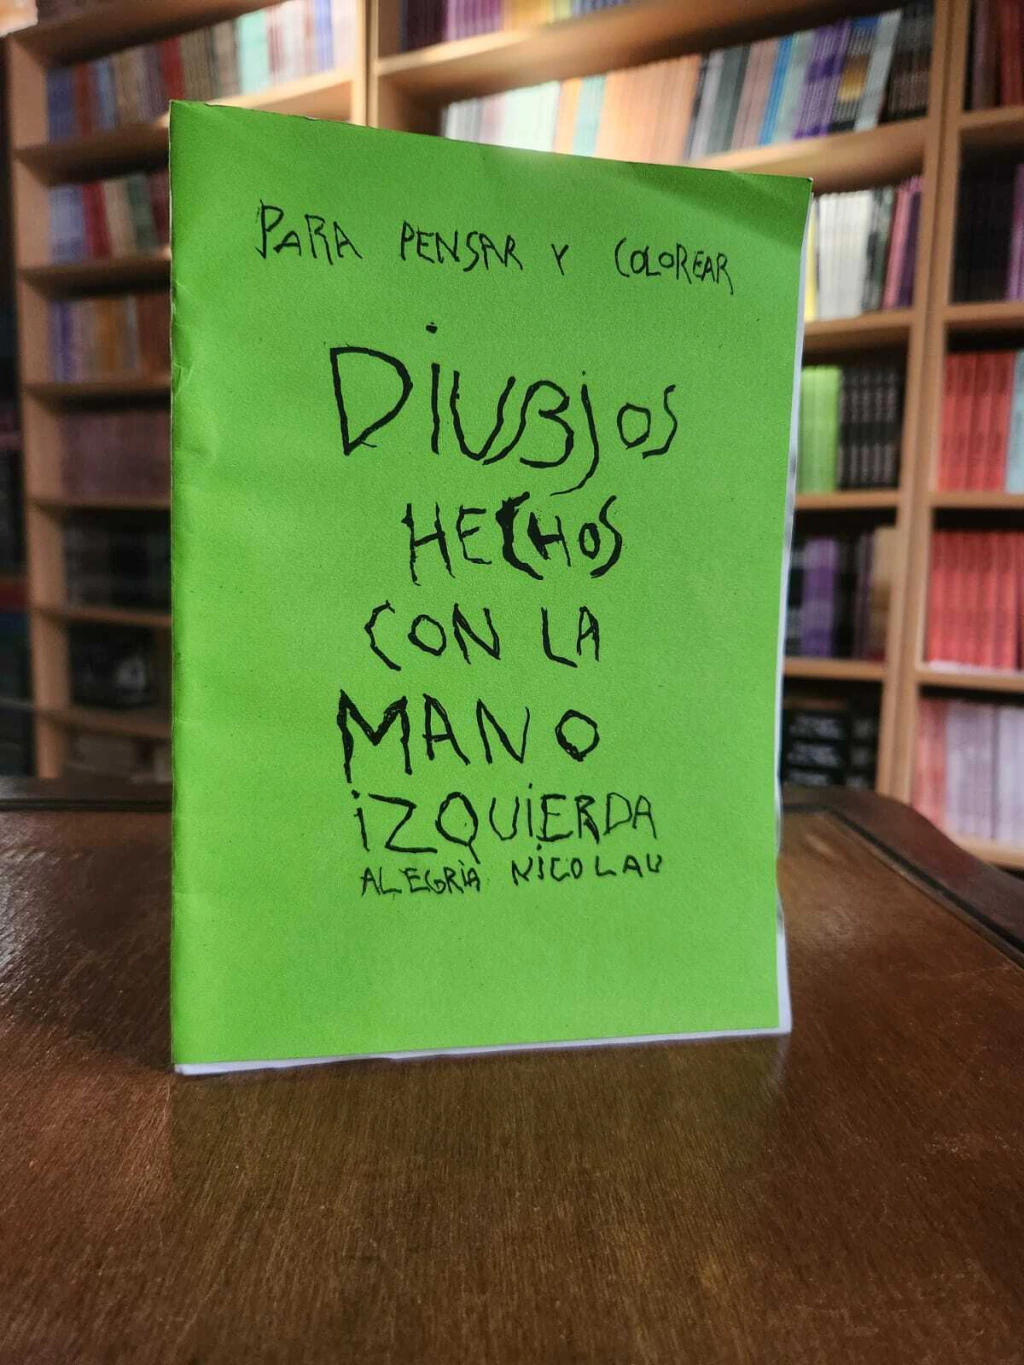 PARA PENSAR Y COLOREAR
DiUBJOS
HECHOS
CON LA
MANO
iZQUiERDA
ALEGRiA NiCOLAU